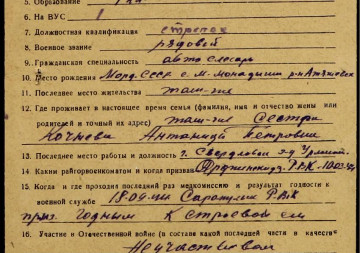 5. Образование
6. На ВУС 1
7. Должностная квалификация стрелок
8. Военное звание рядовой
9. Гражданская специальность авто слесарь
10. Место рождения Морд. СССР с. М. Монадыши р-н Атяшевск
11. Последнее место жительства таш-гил
12. Где проживает в настоящее время семья (фамилия, имя и отчество жены или
родителей и точный их адрес) таш-гил Сестра
Кочнева Петровна
13. Последнее место работы и должность г. Свердловск з-д
14. Каким райгорвоенкоматом и когда призван РВК
15. Когда и где проходил последний раз медкомиссию и результат годности к
военной службе Сарапулск РВК
приз. годным к строевой сл
16. Участие в Отечественной войне (в составе какой последней части и в качестве
Не участвовал